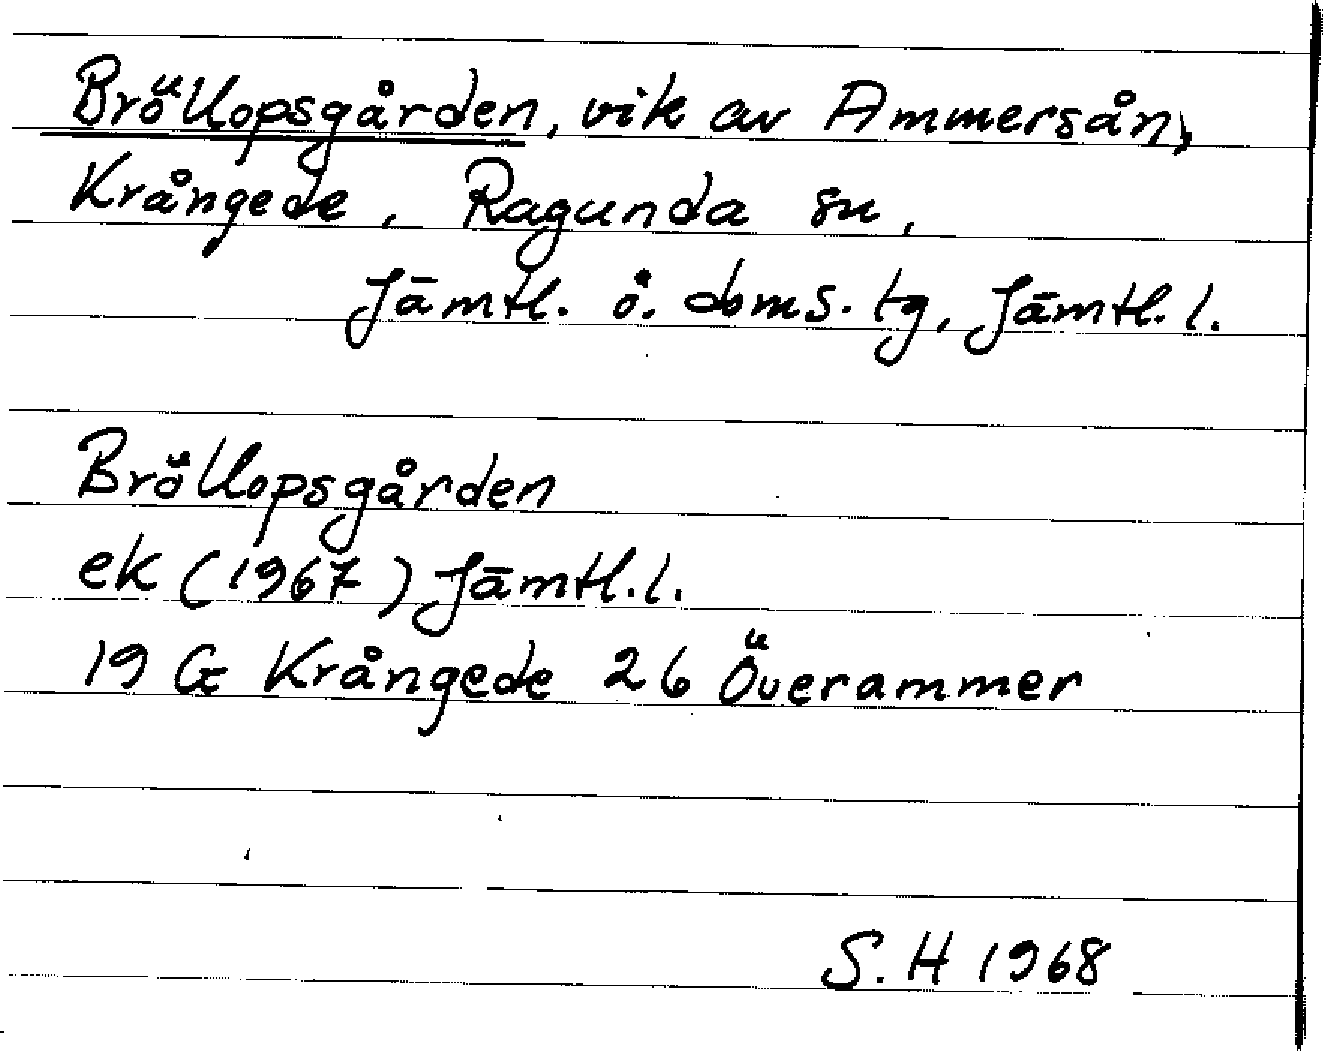 Bröllopsgården, vik av Ammersån,
Krångede, Ragunda sn,
Jämtl. ö. doms. tg, Jämtl. l.
Bröllopsgården
ek (1967) Jämtl. l.
19 G Krångede 26 Överammer
S. H 1968